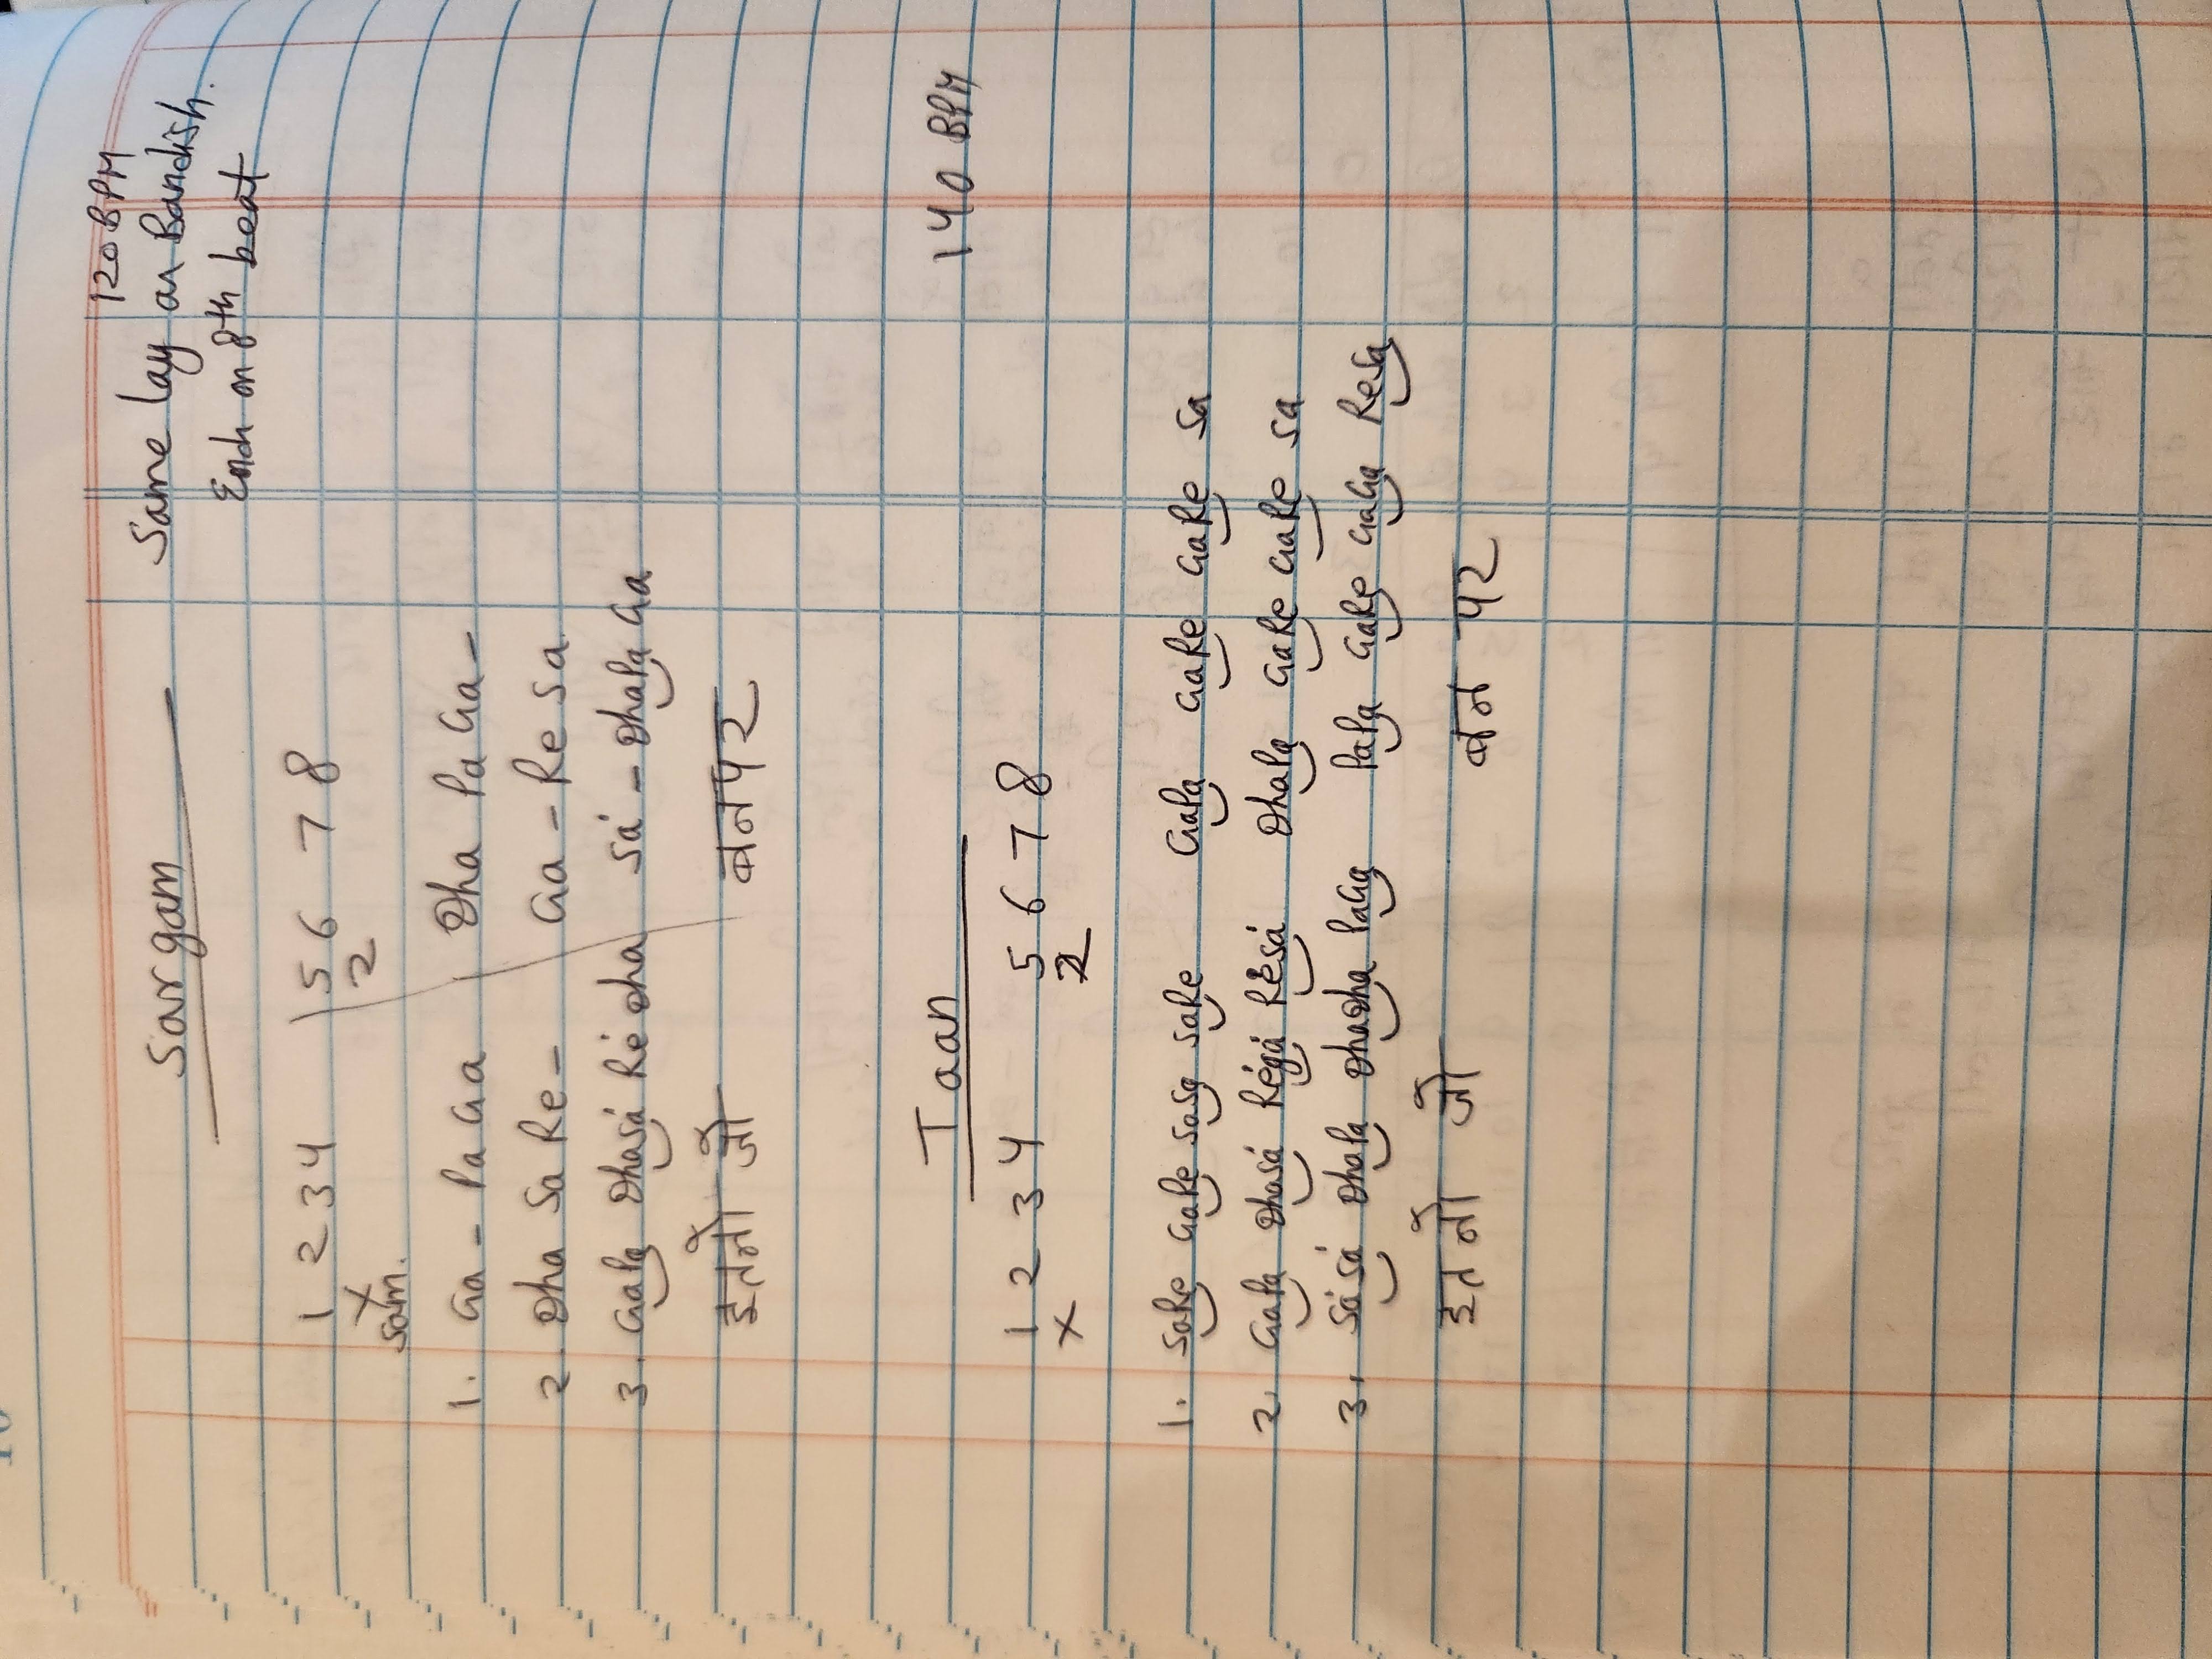 120 BPM
Sargam Same lay as Bandish.
End on 8th beat
1 2 3 4 | 5 6 7 8
X 2
sam.
1. Ga - Pa Ga Dha Pa Ga -
2. Dha Sa Re - Ga - Re Sa
3. GaPa DhaSá Ré Dha Sá - DhaPa Ga
इतनो जो बन पर
Taan 140 BPM
1 2 3 4 5 6 7 8
X 2
1. SaRe GaRe SaSa SaRe GaPa GaRe GaRe Sa
2. GaPa DhaSá RéGá RéSá DhaPa GaRe GaRe Sa
3. SáSá DhaPa DhaDha PaGa PaPa GaRe GaGa ReSa
इतनो जो बन पर